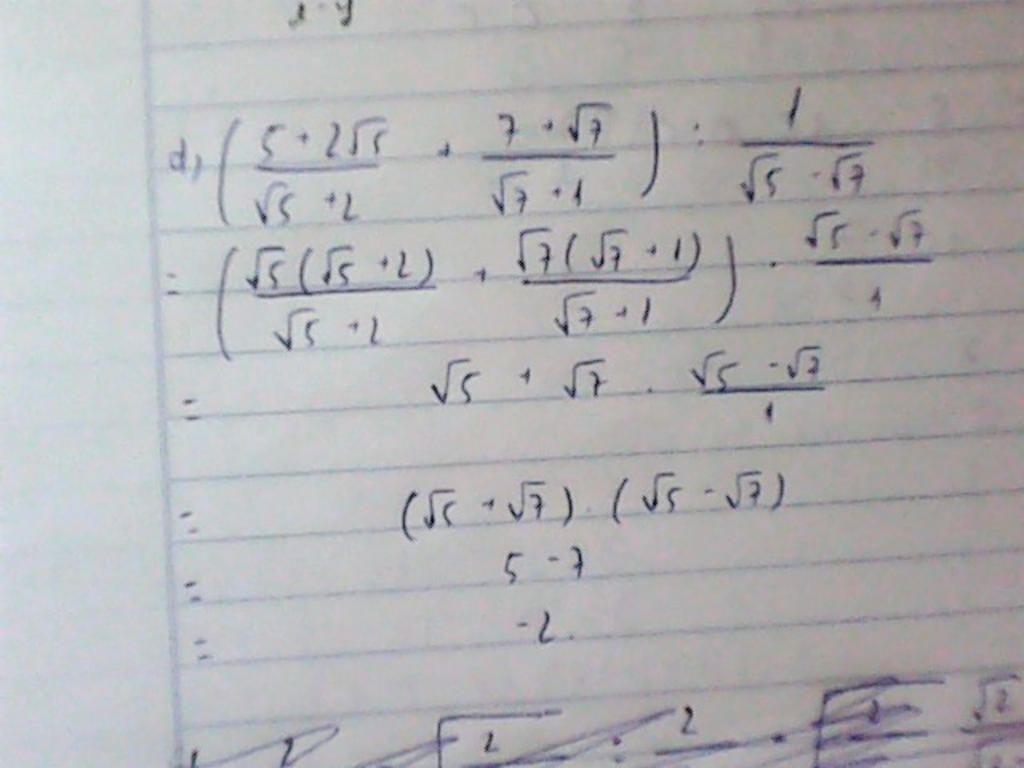 x-y
d, ( (5 + 2√5)/(√5 + 2) + (7 + √7)/(√7 + 1) ) : 1/(√5 - √7)
= ( √5(√5 + 2)/(√5 + 2) + √7(√7 + 1)/(√7 + 1) ) . (√5 - √7)/1
= √5 + √7 . (√5 - √7)/1
= (√5 + √7) . (√5 - √7)
= 5 - 7
= -2.